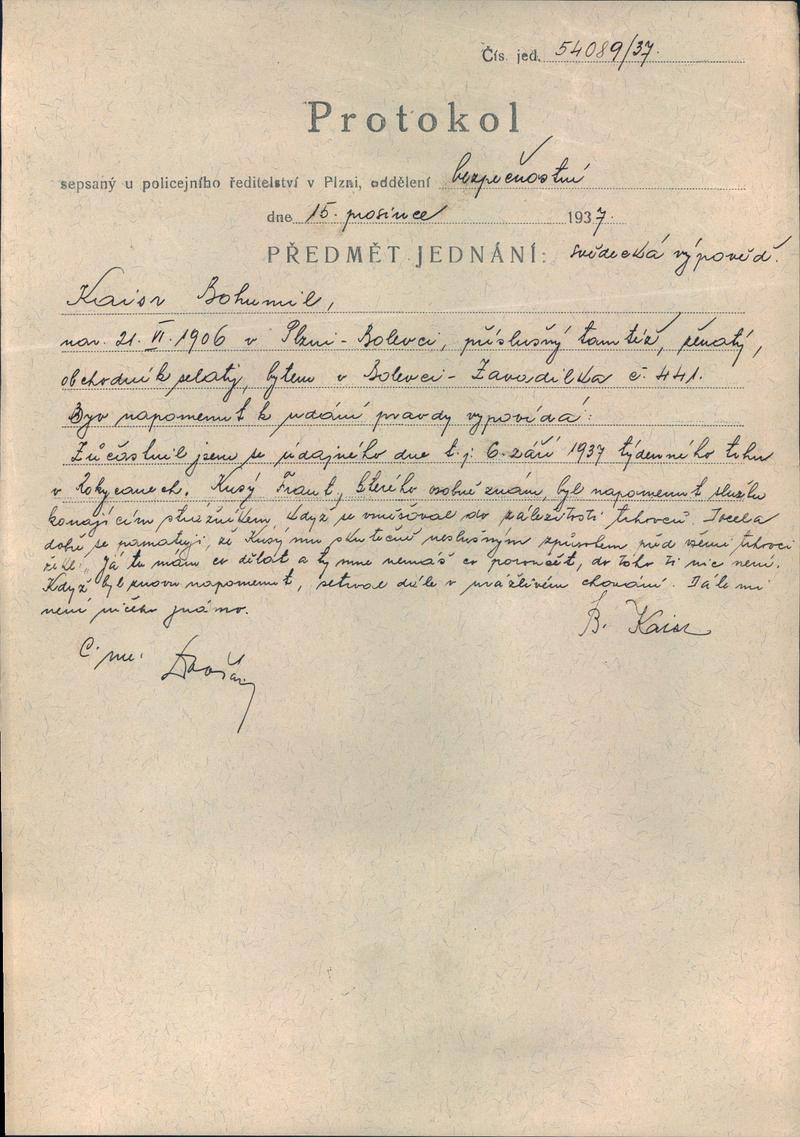 Čís. jed. 54089/37.
Protokol
sepsaný u policejního ředitelství v Plzni, oddělení bezpečnostní
dne 15. prosince 1937.
PŘEDMĚT JEDNÁNÍ: svědecká výpověď.
Kaisr Bohumil,
nar. 21. VI. 1906 v Plzni-Bolevci, příslušný tamtéž, ženatý,
obchodník selaty, bytem v Bolevci-Zavadilka č. 441.
Byv napomenut k udání pravdy vypovídá:
Zůčastnil jsem se údajného dne t.j. 6. září 1937 týdenního trhu
v Rokycanech. Kusý Frant., kterého osobně znám, byl napomenut službu
konajícím strážníkem, když se vměšoval do záležitosti trhovců. Docela
dobře se pamatuji, že Kusý mu skutečně neslušným způsobem před všemi trhovci
řekl: "Já tu mám co dělat a ty mne nemáš co poroučet, do toho ti nic není.
Když byl znovu napomenut, setrval dále v urážlivém chování. Dále mi
není ničeho známo.
B. Kaisr